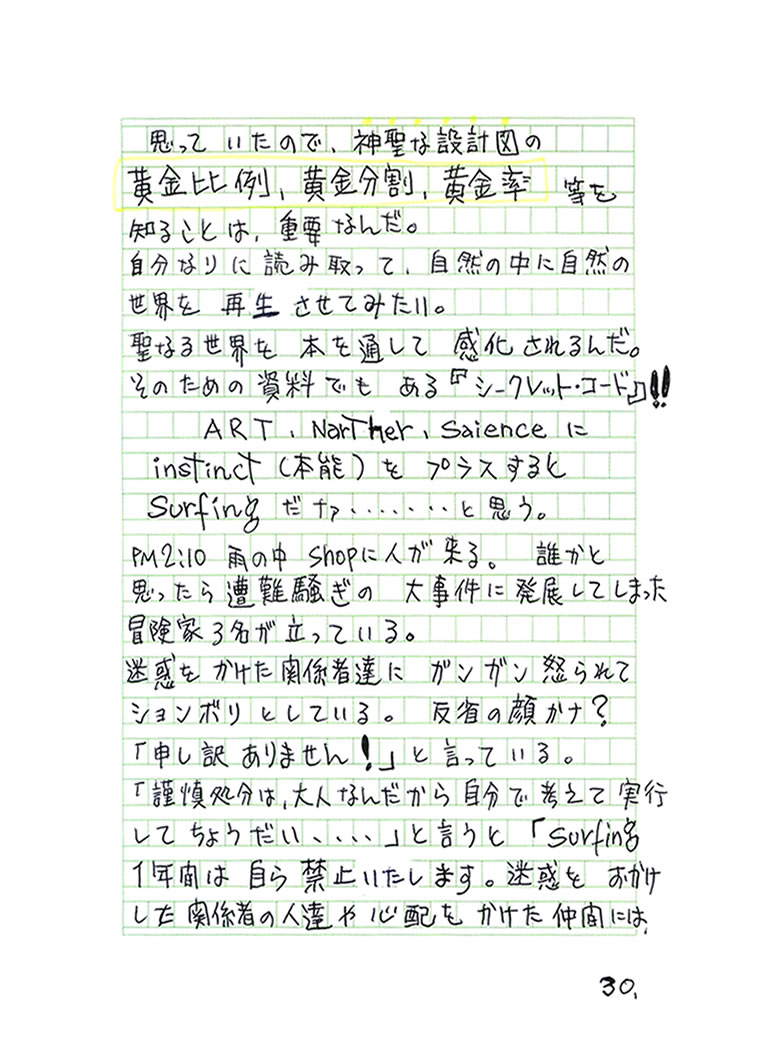 思っていたので、神聖な設計図の
黄金比例、黄金分割、黄金率 等を
知ることは、重要なんだ。
自分なりに読み取って、自然の中に自然の
世界を 再生 させてみたい。
聖なる世界を 本を通して 感化されるんだ。
そのための資料でも ある『シークレット・コード』!!
ART、NarTher、Saience に
instinct (本能) を プラスすると
Surfing だナァ・・・・・・・と思う。
PM2:10 雨の中 shopに人が来る。 誰かと
思ったら遭難騒ぎの 大事件に発展してしまった
冒険家3名が立っている。
迷惑を かけた関係者達に ガンガン怒られて
ションボリとしている。 反省の顔かナ?
「申し訳ありません!」と言っている。
「謹慎処分は、大人なんだから自分で考えて実行
してちょうだい、、、、」と言うと 「Surfing
1年間は 自ら禁止いたします。迷惑を おかけ
した関係者の人達や心配を かけた仲間には、
30,